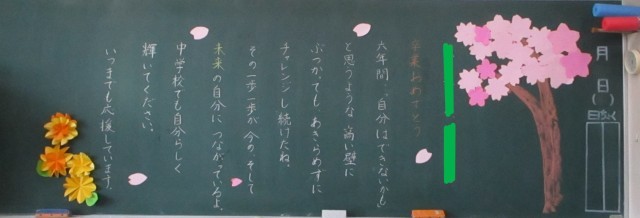 月
日(　)
日ちょく
卒業おめでとう
六年間、自分はできないかも
と思うような高い壁に
ぶつかっても、あきらめずに
チャレンジし続けたね。
その一歩一歩が今の、そして
未来の自分につながっているよ。
中学校でも自分らしく
輝いてください。
いつまでも応援しています。